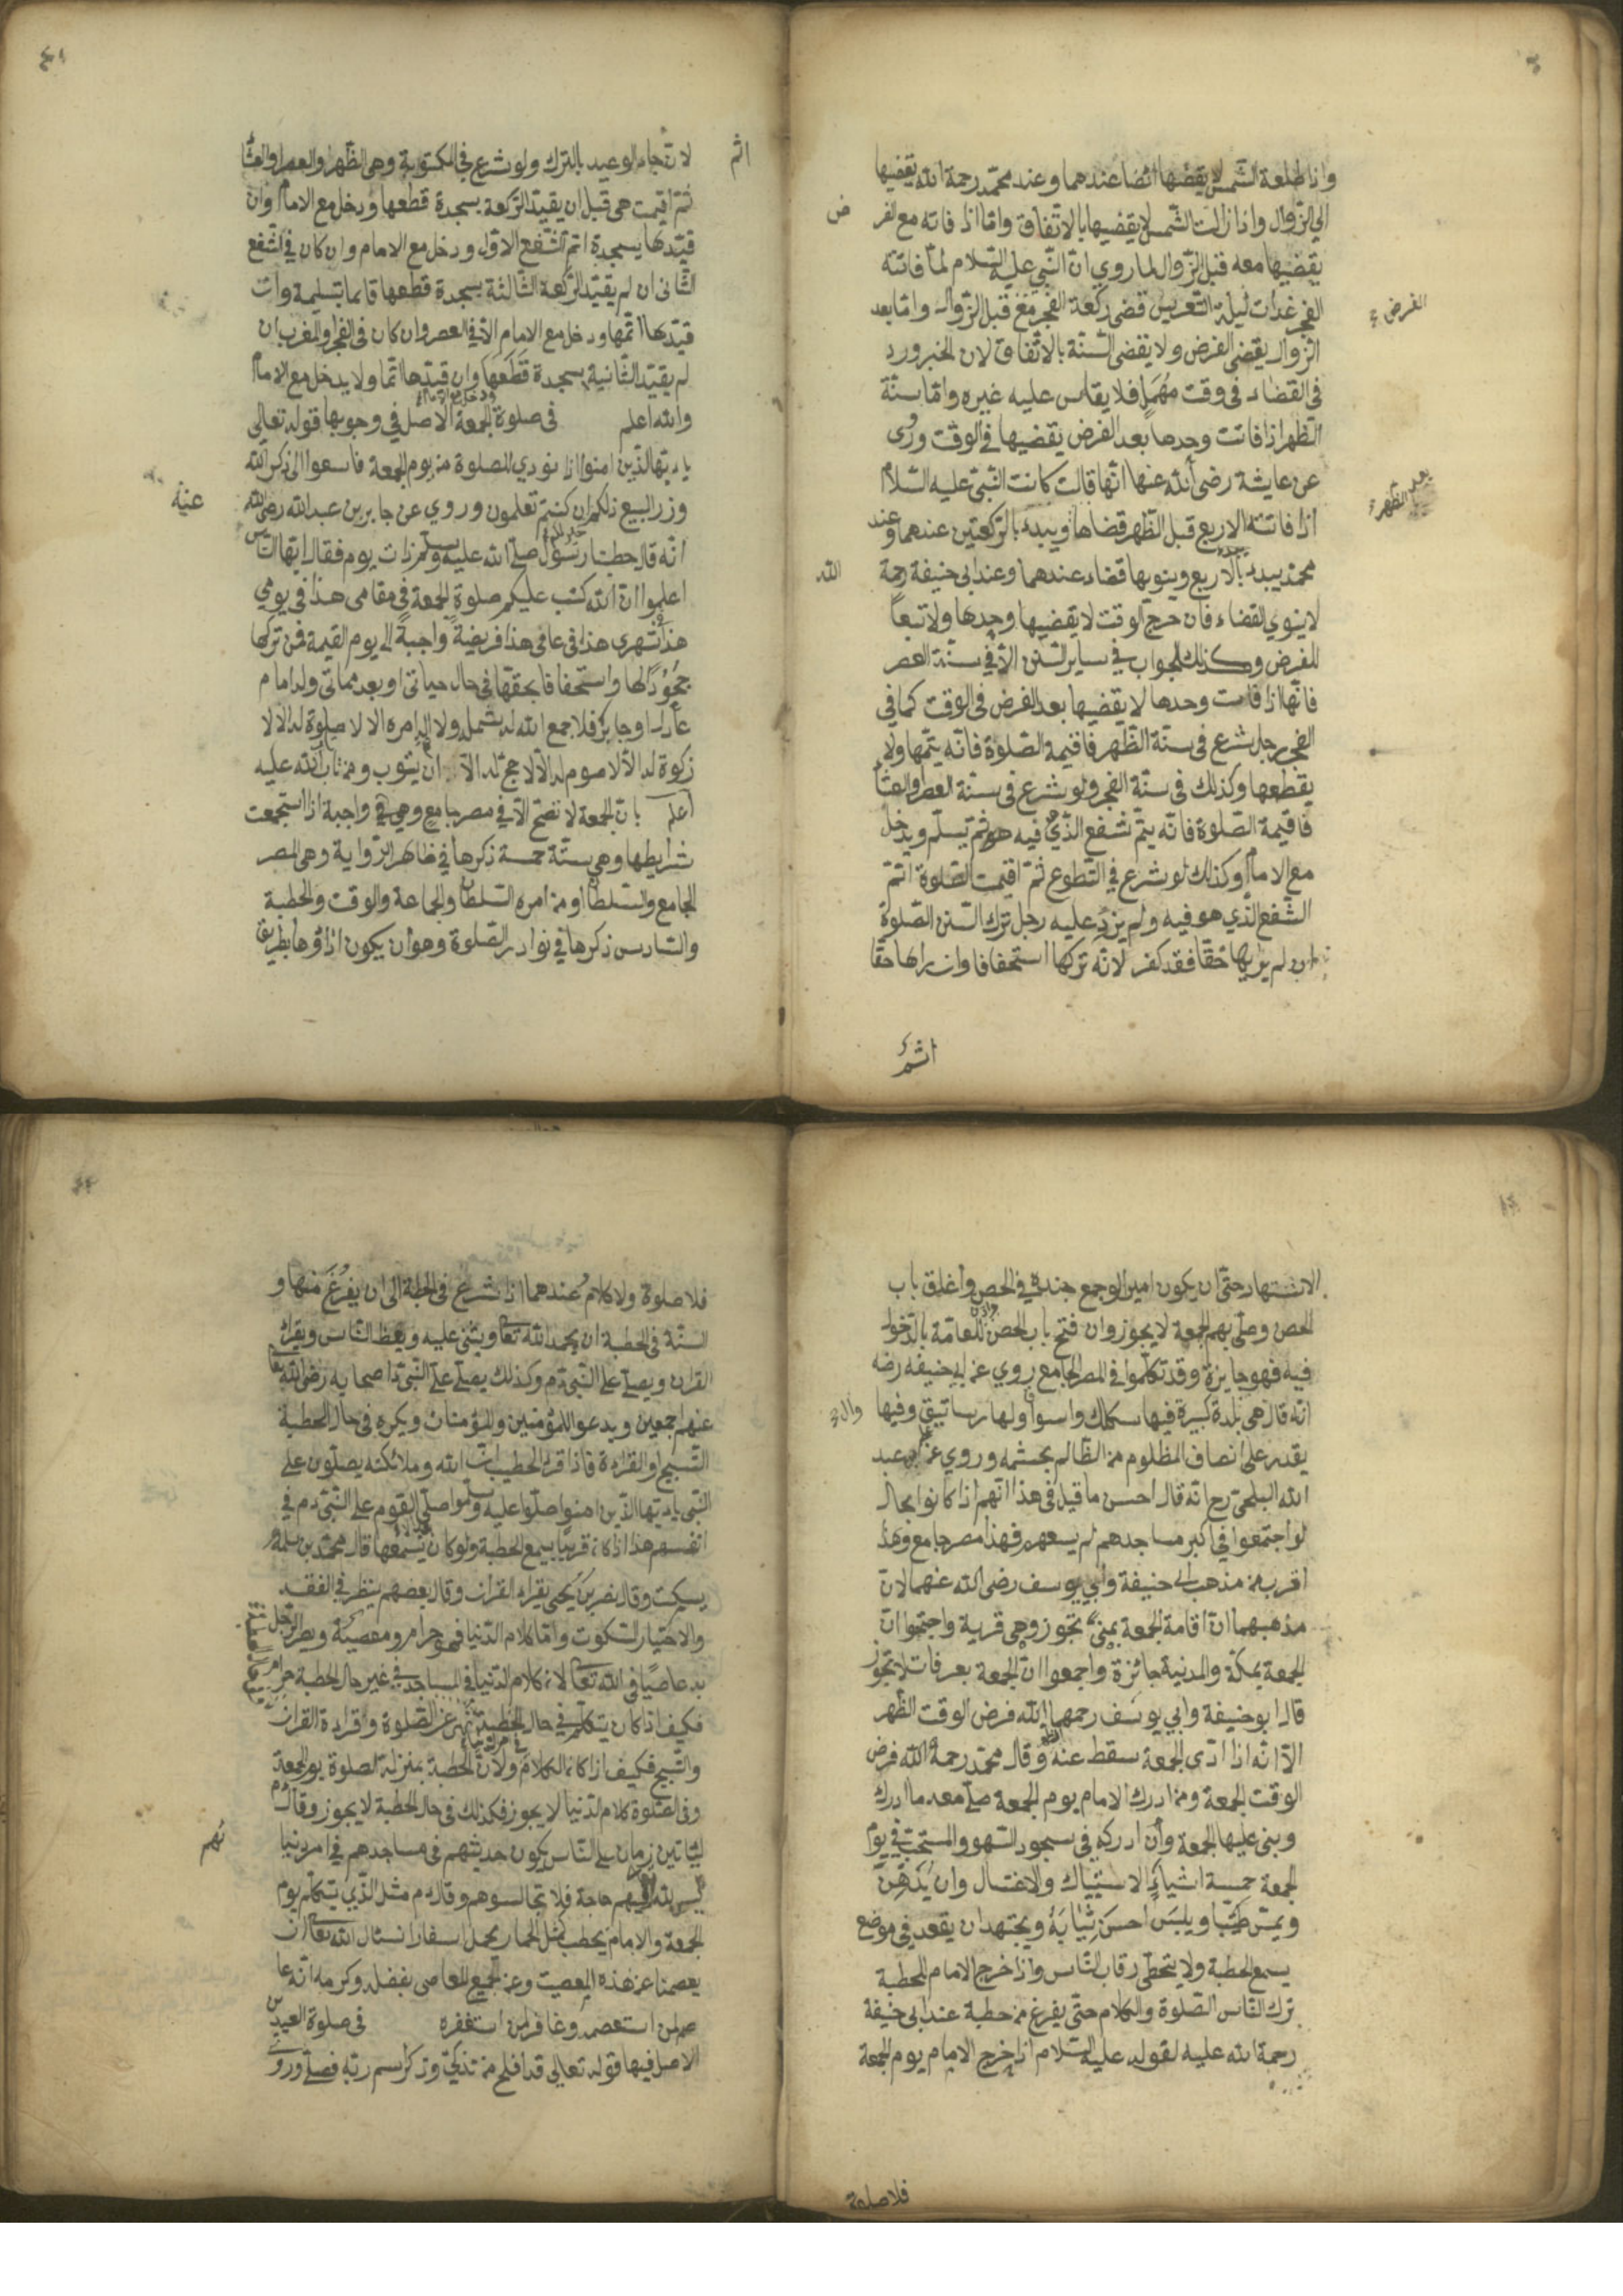 واذا طلعة الشمس لا يقضيها ايضا عندهما وعند محمد رحمة الله يقضيها
الي الزوال واذا زالت الشمس لا يقضيها بالاتفاق واما اذا فاته مع الفر
ض
يقضيها معه قبل الزوال لما روي ان النبي عليه السلام لما فاتته
الفجر غدات ليلة التعريس قضى ركعة الفجر مع قبل الزوال واما بعد
الفرض
الزوال يقضى الفرض ولا يقضى السنة بالاتفاق لان الخبر ورد
في القضاء في وقت مهمل فلا يقاس عليه غيره واما سنة
الظهر اذا فاتت وحدها بعد الفرض يقضيها في الوقت وروى
عن عايشة رضي الله عنها انها قالت كانت النبي عليه السلام
اذا فاتته الاربع قبل الظهر قضاها ويبدء بالركعتين عندهما وعند
بعد الظهر
محمد يبدء بالاربع وينويها قضاء عندهما وعند ابي حنيفة رحمة
الله
لا ينوي القضاء فان خرج الوقت لا يقضيها وحدها ولا تبعا
للفرض وكذلك الجواب في ساير السنن الا في سنة العصر
فانها اذا فاتت وحدها لا يقضيها بعد الفرض في الوقت كما في
الفجر رجل شرع في سنة الظهر فاقيمة الصلوة فانه يتمها ولا
يقطعها وكذلك في سنة الفجر ولو شرع في سنة العصر والعشا
فاقيمة الصلوة فانه يتم شفع الذي فيه هو ثم يسلم ويدخل
مع الامام وكذلك لو شرع في التطوع ثم اقيمت الصلوة اتم
الشفع الذي هو فيه ولم يزد عليه رجل ترك السنن الصلوة
ان لم يراها حقا فقد كفر لانه تركها استخفافا وان راها حقا
اثم
٤١
اثم
لانه جاء الوعيد بالترك ولو شرع في المكتوبة وهي الظهر والعصر والعشا
ثم اقيمت هي قبل ان يقيد الركعة بسجدة قطعها ودخل مع الامام وان
قيدها بسجدة اتم الشفع الاول ودخل مع الامام وان كان في الشفع
الثاني ان لم يقيد الركعة الثالثة بسجدة قطعها قايما بتسليمة وان
قيدها اتمها ودخل مع الامام الا في العصر وان كان في الفجر والمغرب ان
لم يقيد الثانية بسجدة قطعها وان قيدها اتما ولا يدخل مع الامام
ودخل مع الامام
والله اعلم في صلوة الجمعة الاصل في وجوبها قوله تعالى
يا ايتها الذين امنوا اذا نودي للصلوة من يوم الجمعة فاسعوا الى ذكر الله
وذر البيع ذلكم ان كنتم تعلمون وروي عن جابر بن عبد الله رضي الله
عنه
انه قال خطبنا رسول صلى الله عليه وسلم ذات يوم فقال ايتها الناس
اعلموا ان الله كتب عليكم صلوة الجمعة في مقامي هذا في يومي
هذا في شهري هذا في عامي هذا فريضة واجبة الى يوم القيمة فمن تركها
جحودا لها واستخفافا بحقها في حال حياتي او بعد مماتي وله امام
عادل او جابر فلا جمع الله له شمله ولا امره الا لا صلوة له الا لا
زكوة له الا لا صوم له الا لا حج له الا ان يتوب ومن تاب الله عليه
اعلم بان الجمعة لا تصح الا في مصر جامع وهي واجبة اذا استجمعت
شرايطها وهي ستة خمسة ذكرها في ظاهر الرواية وهي المصر
الجامع والسلطان او من امره السلطان والجماعة والوقت والخطبة
والسادس ذكرها في نوادر الصلوة وهو ان يكون اداؤها بطريق
الاشتهار حتى ان يكون امير الوجمع جنده في الحصن واغلق باب
الحصن وصلى بهم الجمعة لا يجوز وان فتح باب الحصن واذن للعامة بالدخول
فيه فهو جايزة وقد تكلموا في المصر الجامع روي عن ابي حنيفه رضه
انه قال هي بلدة كبيرة فيها سكك واسواق ولها رساتيق وفيها
يقدر على انصاف المظلوم من الظالم بحشمه وروي عن ابي عبد
الله البلخي رح انه قال احسن ما قيل في هذا انهم اذا كانوا بحال
لو اجتمعوا في اكبر مساجدهم لم يسعهم فهذا مصر جامع وهذا
اقرب من مذهب ابي حنيفة وابي يوسف رضى الله عنهما لان
مذهبهما ان اقامة الجمعة بمنى تجوز وهي قرية واجتمعوا ان
الجمعة بمكة والمدينة جائزة واجمعوا ان الجمعة بعرفات لا يجوز
قال ابو حنيفة وابي يوسف رحمهما الله فرض الوقت الظهر
الا انه اذا ادى الجمعة سقط عنه وقال محمد رحمة الله فرض
الوقت الجمعة ومن ادرك الامام يوم الجمعة صلى معه ما ادرك
وبنى عليها الجمعة وان ادركه في سجود السهو والمستحب في يوم
الجمعة خمسة اشياء الاستياك والاغتسال وان يدهن
ويمس طيبا ويلبس احسن ثيابه ويجتهد ان يقعد في موضع
يسمع الخطبة ولا يتخطى رقاب الناس واذا خرج الامام للخطبة
ترك الناس الصلوة والكلام حتى يفرغ من خطبة عند ابي حنيفة
رحمة الله عليه لقوله عليه السلام اذا خرج الامام يوم الجمعة
فلا صلوة
٤٢
فلا صلوة ولا كلام عندهما اذا شرع في الخطبة الى ان يفرغ منها و
السنة في الخطبة ان يحمد الله تعا ويثني عليه ويعظ الناس ويقرأ
القران ويصلى على النبي دم وكذلك يصلى على النبي واصحابه رضى الله تعا
عنهم اجمعين ويدعو للمؤمنين والمؤمنات ويكره في حال الخطبة
التسبيح والقراءة فاذا قرء الخطيب ان الله وملائكته يصلون على
النبي يا ايتها الذين امنوا صلوا عليه وسلموا صلى القوم على النبي دم في
انفسهم هذا اذا كان قريبا يسمع الخطبة ولو كان لا يسمعها قال محمد بن سلمة
يسكت وقال نصر بن يحيى يقراء القران وقال بعضهم ينظر في الفقه
والاختيار السكوت واما كلام الدنيا فهو حرام ومعصية ويصر الرجل
به عاصيا في الله تعا لان كلام الدنيا في المساجد في غير حال الخطبة حرام
فكيف اذا كان يتكلم في حال الخطبة نهى عن الصلوة وقراءة القران
والتسبيح فكيف اذا كان الكلام ولان الخطبة بمنزلة الصلوة يوم الجمعة
وفي الصلوة كلام الدنيا لا يجوز فكذلك في حال الخطبة لا يجوز وقال دم
ليأتين زمان على الناس يكون حديثهم في مساجدهم في امر دنيا
هم
ليس لله فيهم حاجة فلا تجالسوهم وقال دم مثل الذي يتكلم يوم
الجمعة والامام يخطب كمثل الحمار يحمل اسفارا نسئال الله تعا ان
يعصمنا عن هذه المعصيت وعن جميع المعاصى بفضله وكرمه انه عا
صم لمن استعصمه وغافر لمن استغفره في صلوة العيدين
الاصل فيها قوله تعالى قد افلح من تذكى وذكر اسم ربه فصلى وروى